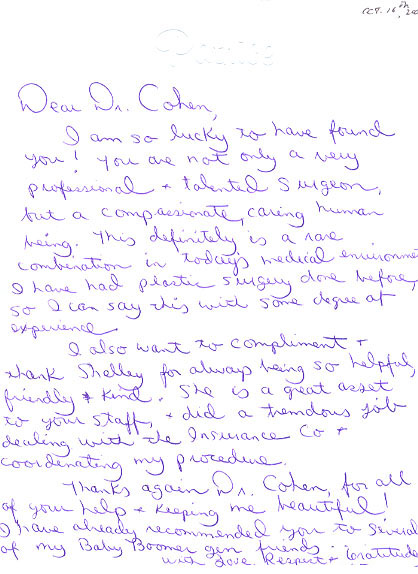 Oct. 16th, 200
Dear Dr. Cohen,
I am so lucky to have found
you! You are not only a very
professional + talented surgeon,
but a compassionate, caring human
being. This definitely is a rare
combination in today's medical environme
I have had plastic surgery done before,
so I can say this with some degree of
experience.
I also want to compliment +
thank Shelley for always being so helpful,
friendly + kind. She is a great asset
to your staff, + did a tremdous job
dealing with the Insurance Co +
coordinating my procedure.
Thanks again Dr. Cohen, for all
of your help + keeping me beautiful!
I have already recommended you to
of my Baby Boomer gen friends
with Love Respect + Gratitude